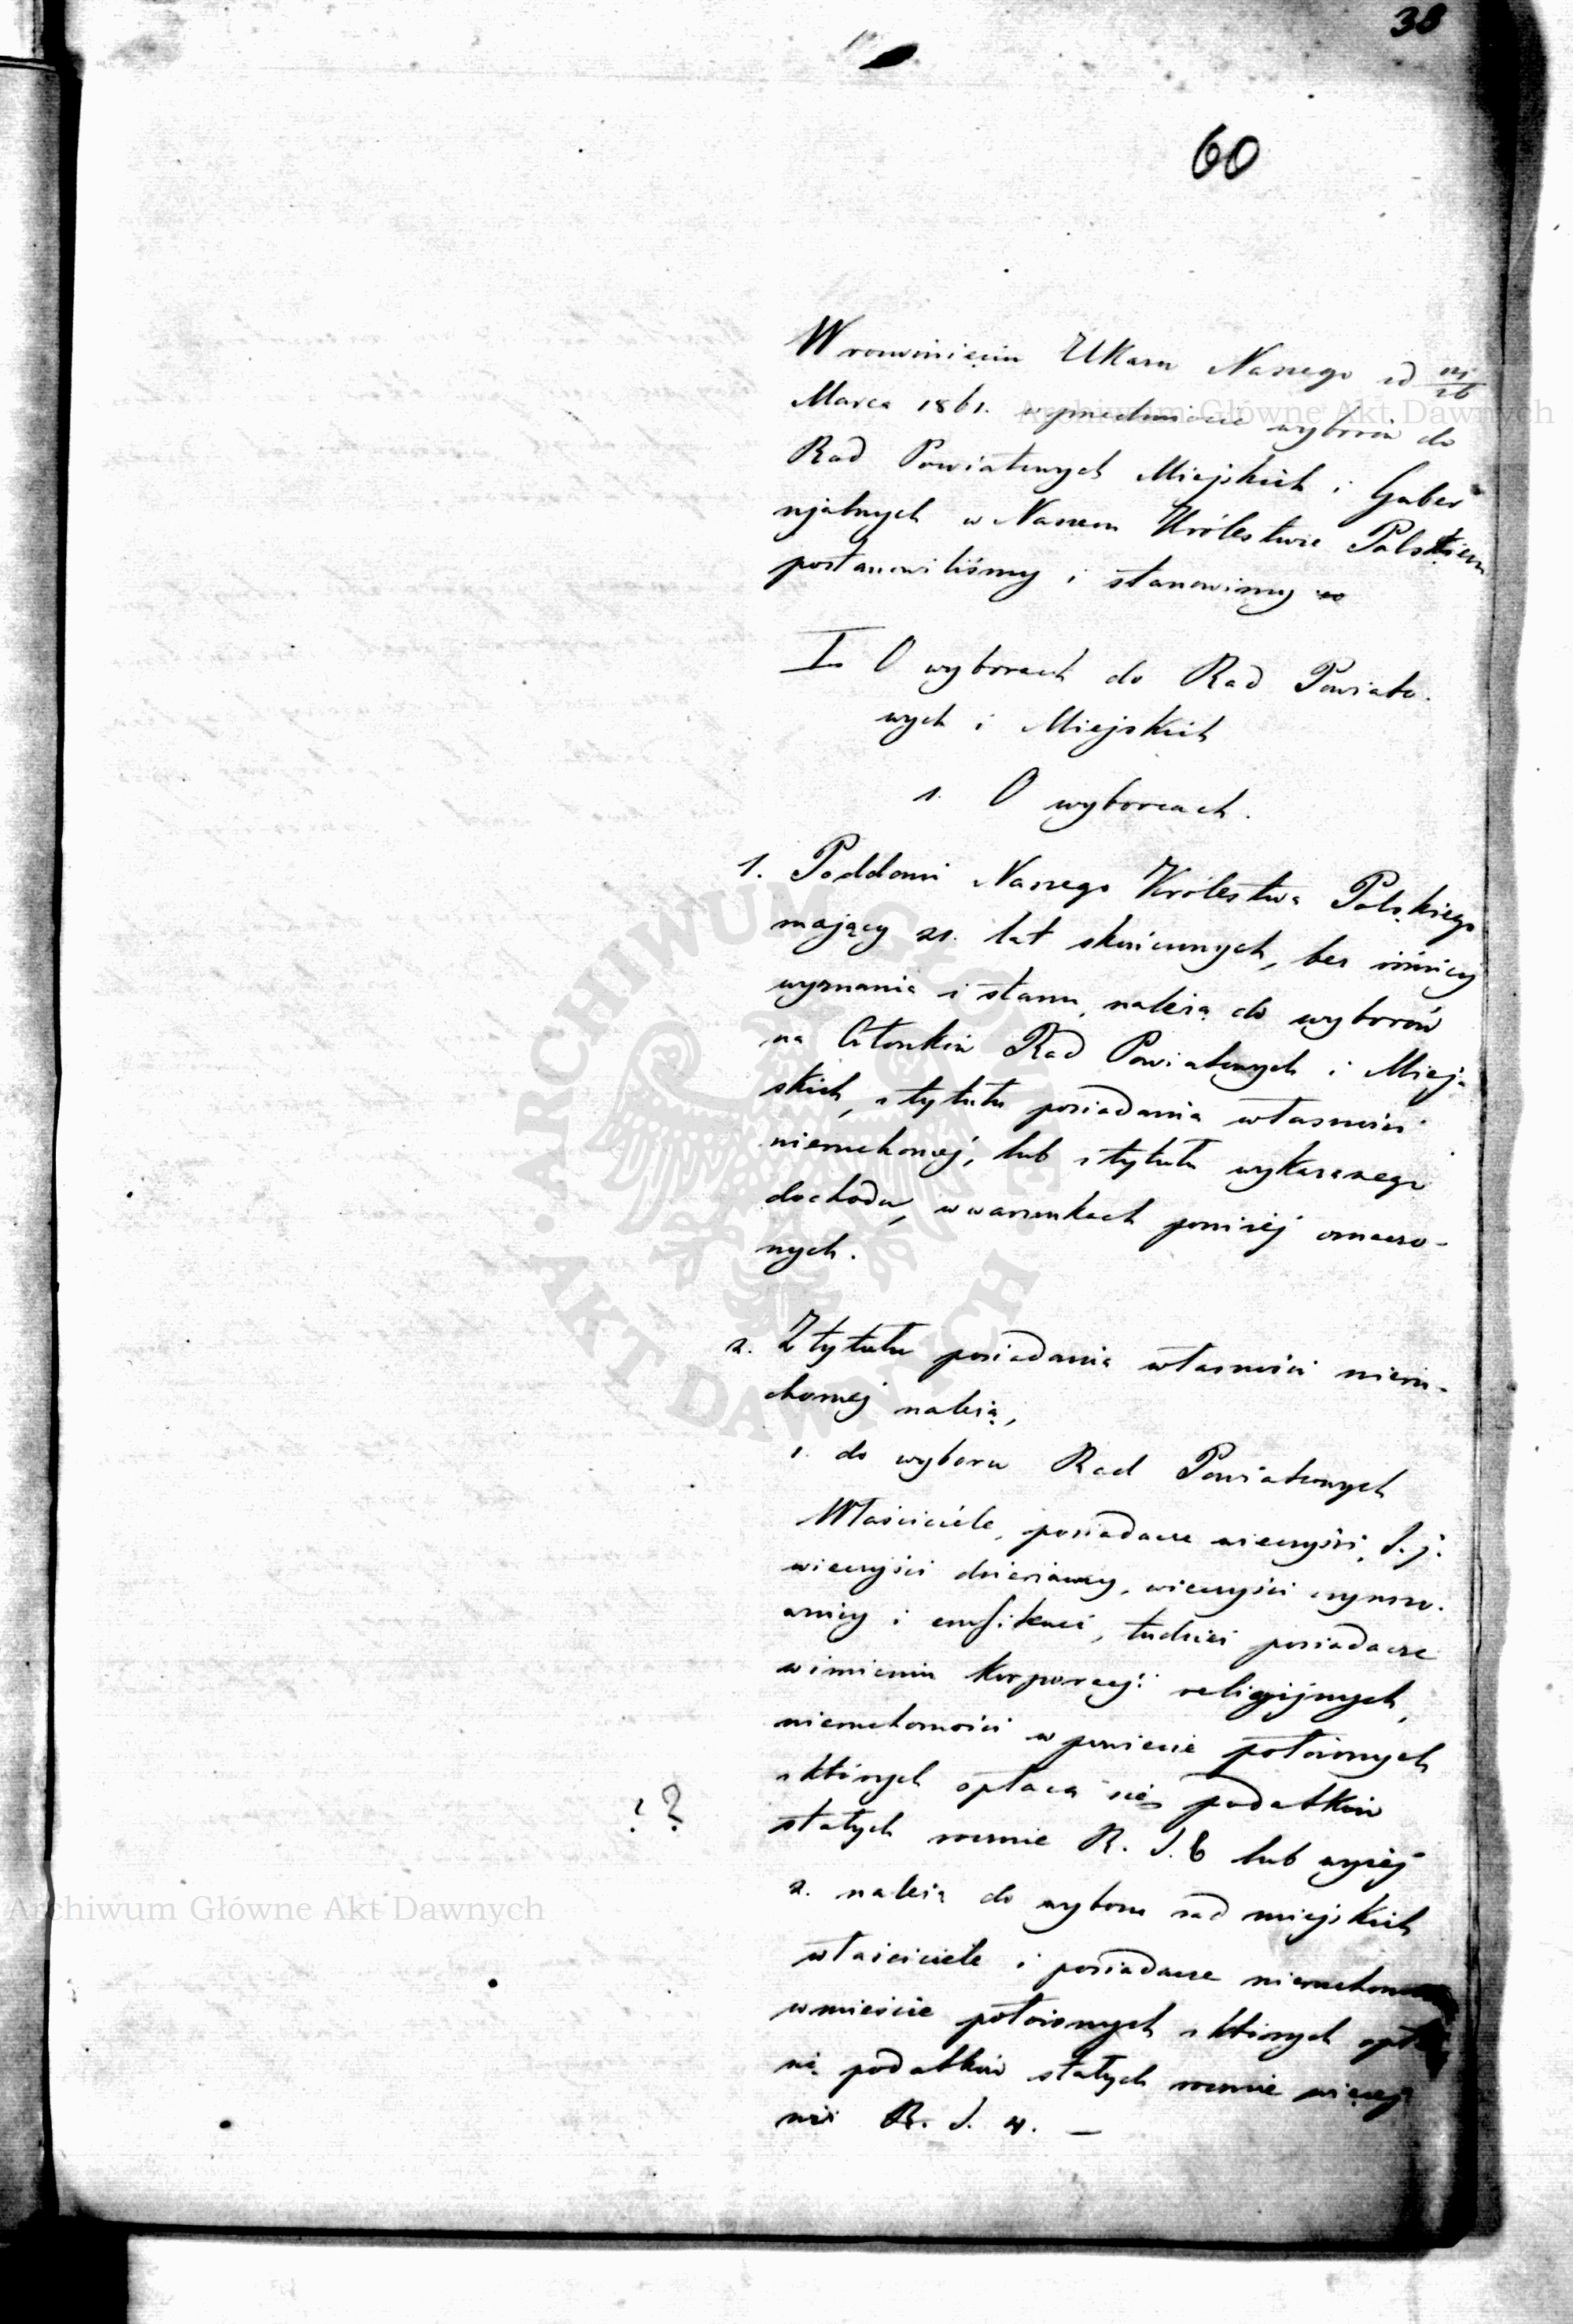 38
60
W rozwinięciu Ukazu Naszego od 14/26
Marca 1861. w przedmiocie wyborów do
Rad Powiatowych Miejskich i Guber
njalnych w Naszem Królestwie Polskiem
postanowiliśmy i stanowimy co
I. O wyborach do Rad Powiato-
wych i Miejskich
1. O wyborcach.
1. Poddani Naszego Królestwa Polskiego
mający 21. lat skończonych, bez różnicy
wyznania i stanu, należą do wyborów
na Członków Rad Powiatowych i Miej-
skich, z tytułu posiadania własności
nieruchomej, lub z tytułu wykazanego
dochodu, w warunkach poniżej oznaczo-
nych.
2. Z tytułu posiadania własności nieru-
chomej należą,
1. do wyboru Rad Powiatowych
Właściciele, posiadacze wieczyści, t. j.
wieczyści dzierżawcy, wieczyści czynszo-
wnicy i emfiteuci, tudzież posiadacze
w imieniu korporacyi religijnych,
nieruchomości w powiecie położonych
z których opłaca się podatków
stałych rocznie R. S. 6 lub wyżej
??
2. należą do wyboru rad miejskich
właściciele i posiadacze
w mieście położonych z których
się podatków stałych rocznie więcej
niż R. S. 4. —
Archiwum Główne Akt Dawnych
Archiwum Główne Akt Dawnych
ARCHIWUM GŁÓWNE • AKT DAWNYCH •